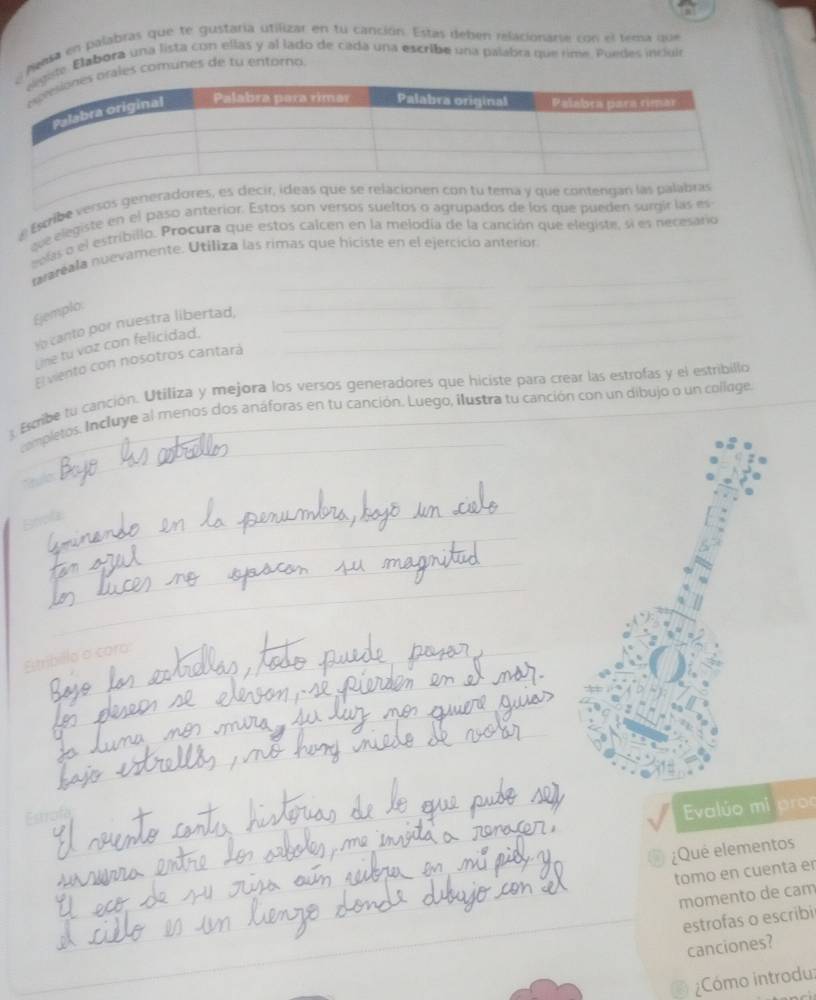 Piensa en palabras que te gustaría utilizar en tu canción. Estas deben relacionarse con el tema que
elegiste. Elabora una lista con ellas y al lado de cada una escribe una palabra que rime. Puedes incluir
expresiones orales comunes de tu entorno.
Palabra original Palabra para rimar Palabra original Palabra para rimar
Escribe versos generadores, es decir, ideas que se relacionen con tu tema y que contengan las palabras
que elegiste en el paso anterior. Estos son versos sueltos o agrupados de los que pueden surgir las es-
trofas o el estribillo. Procura que estos calcen en la melodía de la canción que elegiste, si es necesario
tararéala nuevamente. Utiliza las rimas que hiciste en el ejercicio anterior.
Ejemplo:
Yo canto por nuestra libertad,
Une tu voz con felicidad.
El viento con nosotros cantará
Escribe tu canción. Utiliza y mejora los versos generadores que hiciste para crear las estrofas y el estribillo
completos. Incluye al menos dos anáforas en tu canción. Luego, ilustra tu canción con un dibujo o un collage.
Título: Bajo las estrellas
Estrofa:
en la penumbra, bajo un cielo
tan azul
los luces no opacan su magnitud
Estribillo o coro:
Bajo las estrellas, todo puede pasar,
los deseos se elevan, se pierden en el mar.
la luna nos mira, su luz nos quiere guiar
bajo estrellas, no hay miedo de volar
Estrofa
El viento canta historias de lo que pudo ser,
susurra entre los arboles, me invita a renacer.
El eco de su risa aún vibra en mi piel, y
el cielo es un lienzo donde dibujo con el
Evalúo mi proc
¿Qué elementos
tomo en cuenta en
momento de cam
estrofas o escribi
canciones?
¿Cómo introdu